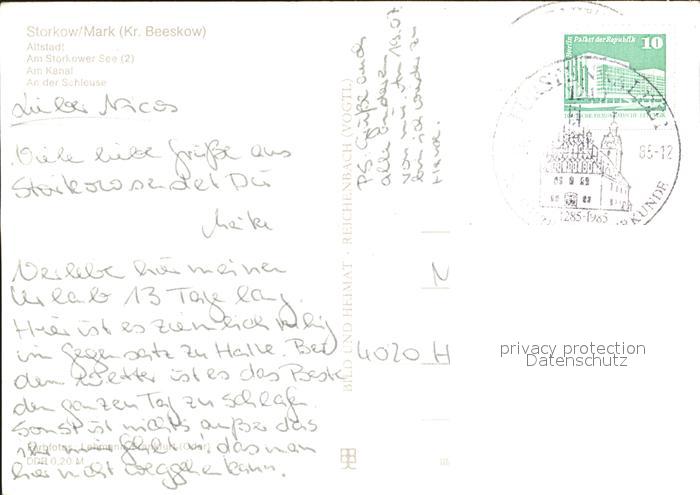 Storkow/Mark (Kr. Beeskow)
Altstadt
Am Storkower See (2)
Am Kanal
An der Schleuse
Lieber Nicos
Viele liebe Grüße aus
Storkow sendet Dir
Meike
Verlebe hier meinen
Urlaub 13 Tage lang.
Hier ist es ziemlich ruhig
im Gegensatz zu Halle. Bei
dem Wetter ist es das Beste
den ganzen Tag zu schlafen.
Sonst ist nichts außer das
hier
das man
hier nicht weggehen kann.
Farbfotos: Lehmann
DDR 0,20 M
PS. Grüße auch
alle anderen
von mir. Am 13.07.
bin ich wieder zu
Hause.
BILD UND HEIMAT · REICHENBACH (VOGTL)
N
4020 H
Berlin Palast der Republik
10
85-12
1285-1985
KUNDE
privacy protection
Datenschutz